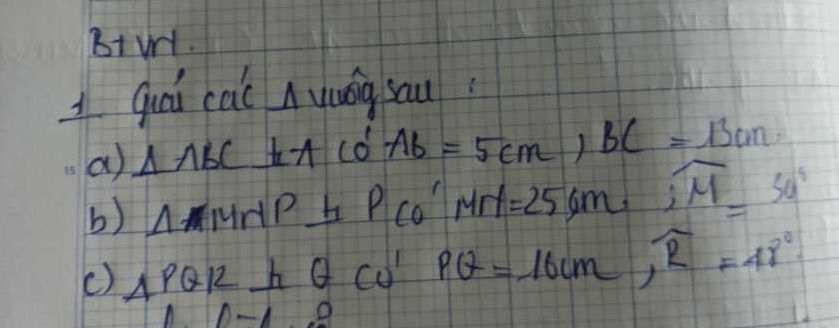 BTVN.
1 Giải các Δ vuông sau :
a) Δ ABC ⊥ A có Ab = 5cm, BC = 13cm.
b) Δ MNP ⊥ P có MN=25cm, ; M̂ = 50°
c) Δ PQR ⊥ Q có PQ = 16cm, R̂ = 48°